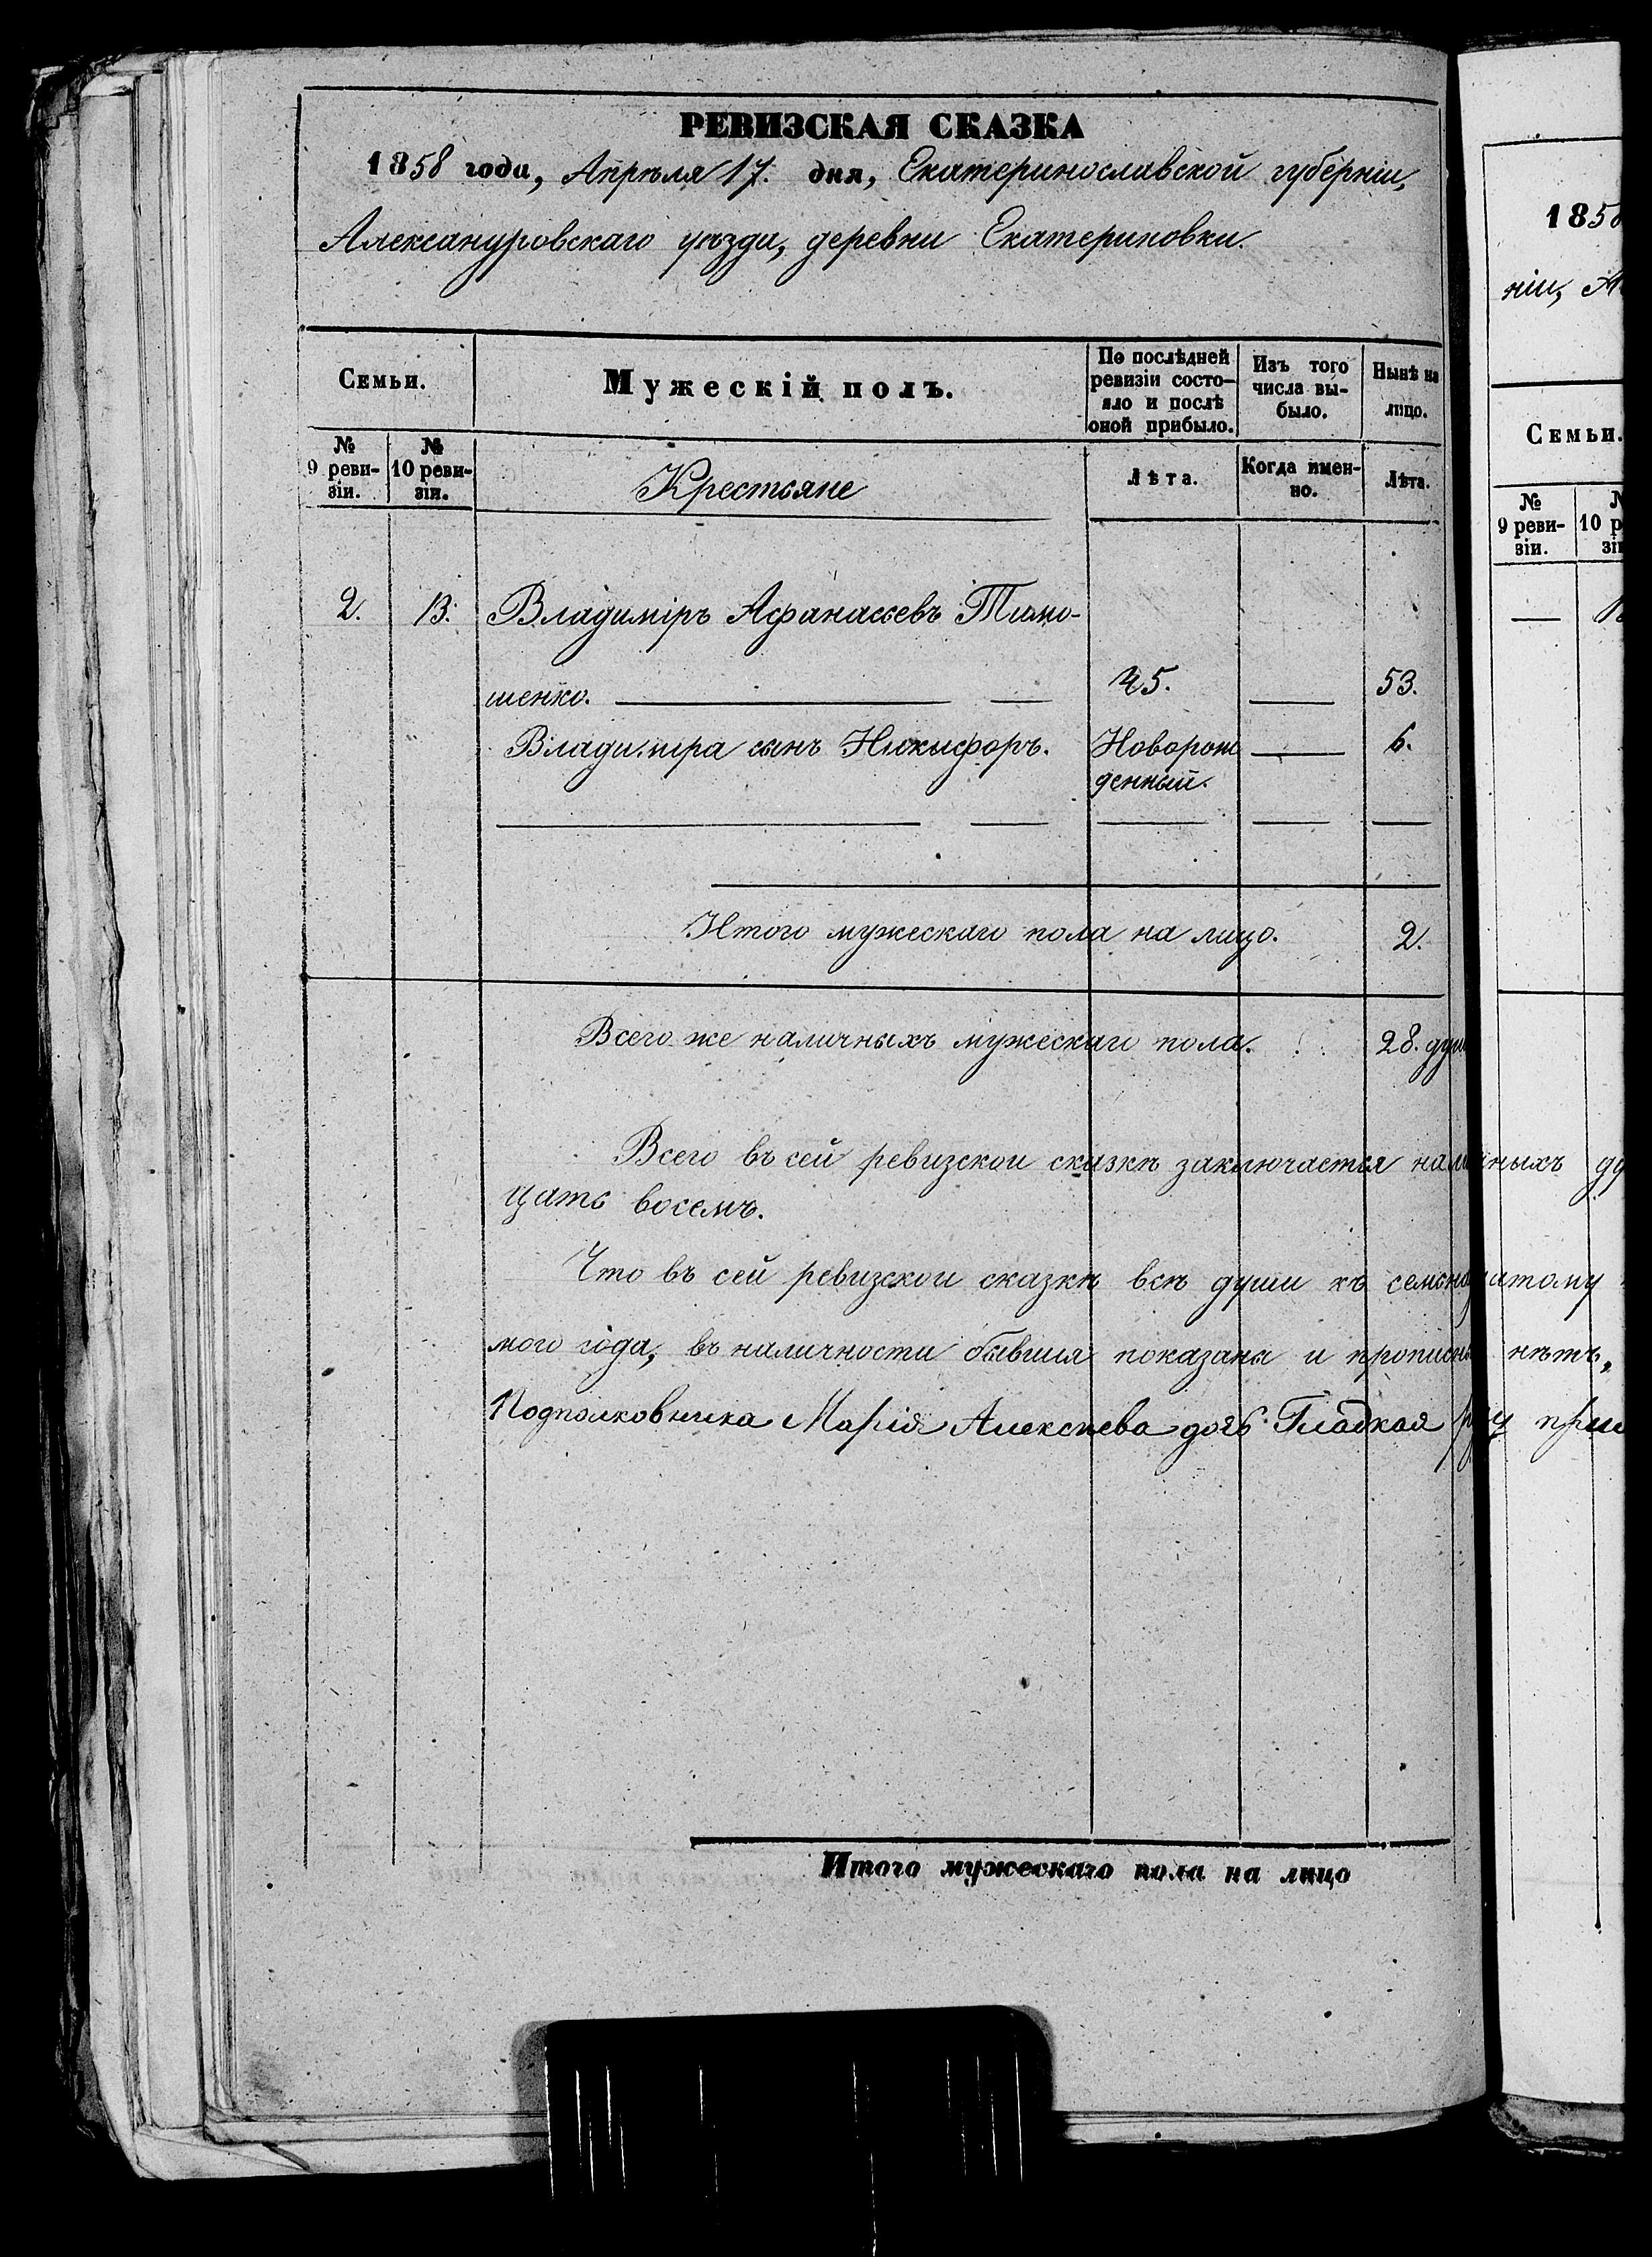 РЕВИЗСКАЯ СКАЗКА
1858 года, Апрѣля 17. дня, Екатеринославской губерніи,
Александровскаго уѣзда, деревни Екатериновки.
Семьи.
Мужескій полъ.
По послѣдней ревизіи состояло и послѣ оной прибыло.
Изъ того числа выбыло.
Нынѣ на лицо.
№ 9 ревизіи.
№ 10 ревизіи.
Крестьяне
Лѣта.
Когда именно.
Лѣта.
2. 13. Владиміръ Афанасьевъ Тимо-
шенко. 45. 53.
Владиміра сынъ Никифоръ. Новорож 6.
денный.
Итого мужескаго пола на лицо. 2.
Всего же наличныхъ мужескаго пола. 28. душ
Всего въ сей ревизской сказкѣ заключается наличныхъ ду
цать восемъ.
Что въ сей ревизской сказкѣ всѣ души къ семнадцатому
мого года, въ наличности бывшія показаны и прописныхъ нѣтъ,
Подполковника Марія Алексѣева дочь Гладкая руку прил
Итого мужескаго пола на лицо
1858
ніи, Ал
Семьи.
№ 9 ревизіи.
10 р